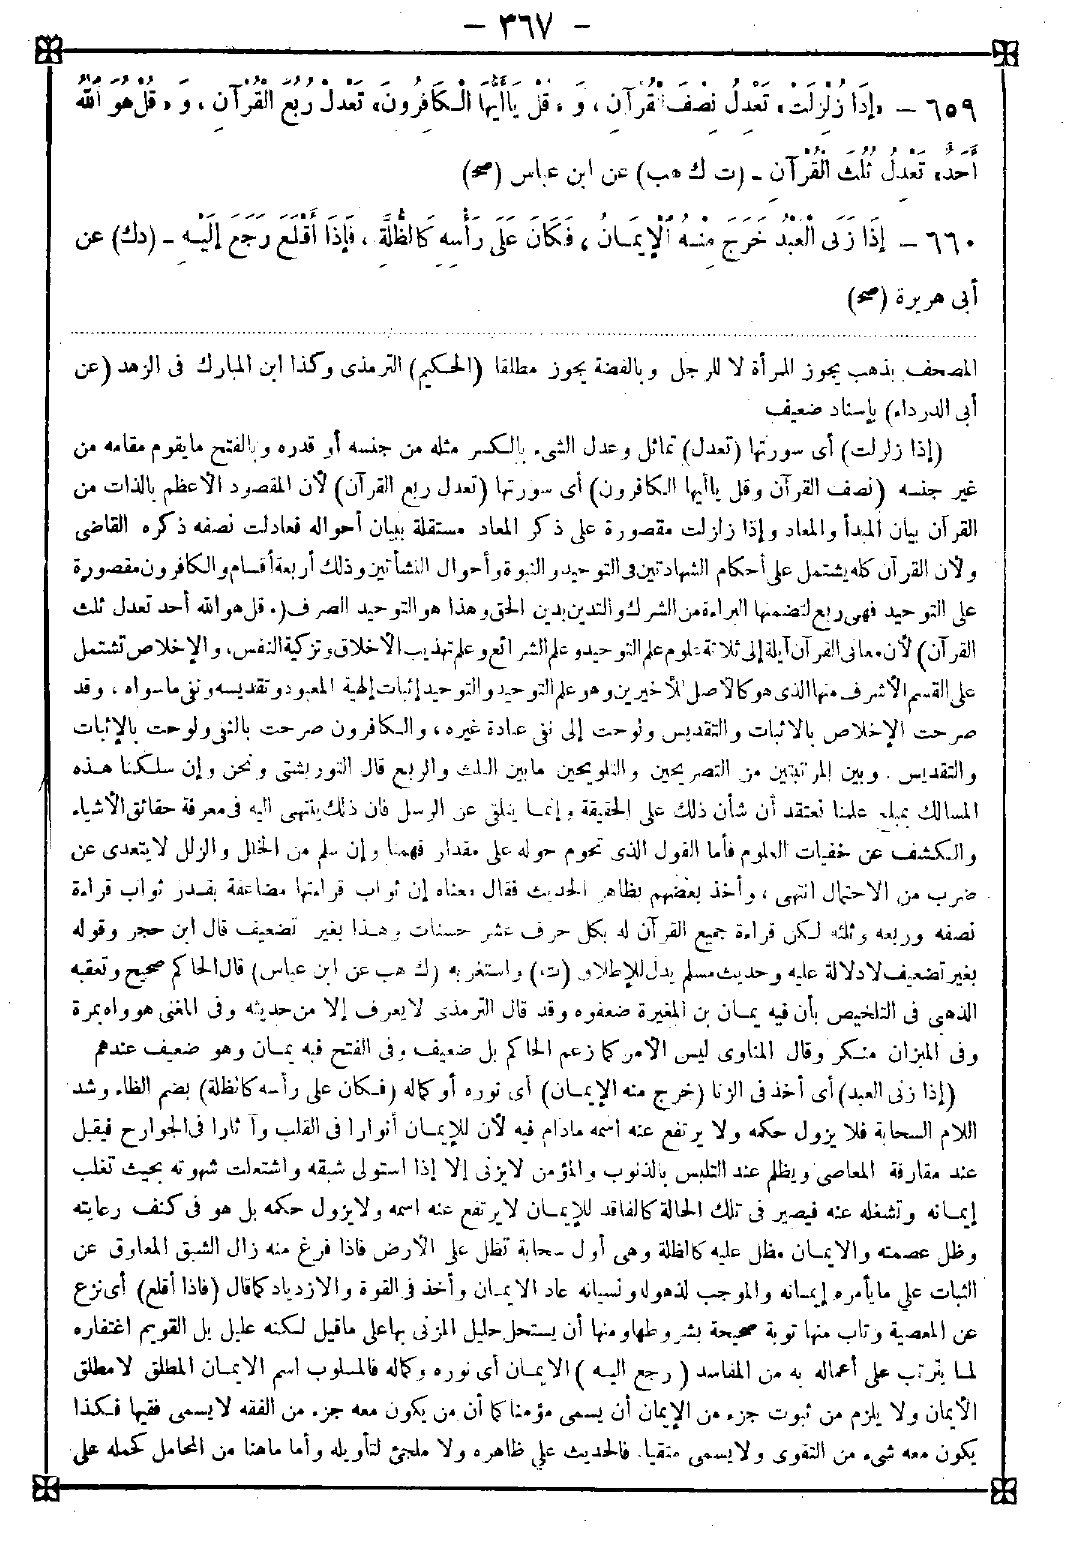 - ٣٦٧ -
٦٥٩ - «إِذَا زُلْزِلَتْ» تَعْدِلُ نِصْفَ الْقُرْآنِ ، وَ «قُلْ يَا أَيُّهَا الْكَافِرُونَ» تَعْدِلُ رُبُعَ الْقُرْآنِ ، وَ «قُلْ هُوَ اللهُ
أَحَدٌ» تَعْدِلُ ثُلُثَ الْقُرْآنِ - (ت ك هب) عن ابن عباس (صح)
٦٦٠ - إِذَا زَنَى الْعَبْدُ خَرَجَ مِنْهُ الْإِيمَانُ ، فَكَانَ عَلَى رَأْسِهِ كَالظُّلَّةِ ، فَإِذَا أَقْلَعَ رَجَعَ إِلَيْهِ - (دك) عن
أبى هريرة (صح)
المصحف بذهب يجوز للمرأة لا للرجل وبالفضة يجوز مطلقا (الحكيم) الترمذى وكذا ابن المبارك فى الزهد (عن
أبى الدرداء) بإسناد ضعيف
(إذا زلزلت) أى سورتها (تعدل) تماثل وعدل الشىء بالكسر مثله من جنسه أو قدره وبالفتح ما يقوم مقامه من
غير جنسه (نصف القرآن وقل ياأيها الكافرون) أى سورتها (تعدل ربع القرآن) لأن المقصود الأعظم بالذات من
القرآن بيان المبدأ والمعاد وإذا زلزلت مقصورة على ذكر المعاد مستقلة ببيان أحواله فعادلت نصفه ذكره القاضى
ولأن القرآن كله يشتمل على أحكام الشهادتين فى التوحيد والنبوة وأحوال النشأتين وذلك أربعة أقسام والكافرون مقصورة
على التوحيد فهى ربع لتضمنها البراءة من الشرك والتدين بدين الحق وهذا هو التوحيد الصرف (. قل هو الله أحد تعدل ثلث
القرآن) لأن معانى القرآن آيلة إلى ثلاثة علوم علم التوحيد وعلم الشرائع وعلم تهذيب الأخلاق وتزكية النفس، والإخلاص تشتمل
على القسم الأشرف منها الذى هو كالأصل للأخيرين وهو علم التوحيد والتوحيد إثبات إلهية المعبود وتقديسه ونفى ما سواه ، وقد
صرحت الإخلاص بالاثبات والتقديس ولوحت إلى نفى عبادة غيره ، والكافرون صرحت بالنفى ولوحت بالإثبات
والتقديس . وبين المرتبتين من التصريحين والتلويحين ما بين الثلث والربع قال التوربشتى ونحن وإن سلكنا هذه
المسالك بمبلغ علمنا نعتقد أن شأن ذلك على الحقيقة وإنما يتلقى عن الرسل فان ذلك ينتهى اليه فى معرفة حقائق الأشياء
والكشف عن خفيات العلوم فأما القول الذى نحوم حوله على مقدار فهمنا وإن سلم من الخلل والزلل لا يتعدى عن
ضرب من الاحتمال انتهى ، وأخذ بعضهم بظاهر الحديث فقال معناه إن ثواب قراءتها مضاعفة بقدر ثواب قراءة
نصفه وربعه وثلثه لكن قراءة جميع القرآن له بكل حرف عشر حسنات وهذا بغير تضعيف قال ابن حجر وقوله
بغير تضعيف لا دلالة عليه وحديث مسلم يدل للإطلاق (ت) واستغربه (ك هب عن ابن عباس) قال الحاكم صحيح وتعقبه
الذهبى فى التلخيص بأن فيه يمان بن المغيرة ضعفوه وقد قال الترمذى لا يعرف إلا من حديثه وفى المغنى هو واه بمرة
وفى الميزان منكر وقال المناوى ليس الأمر كما زعم الحاكم بل ضعيف وفى الفتح فيه يمان وهو ضعيف عندهم
(إذا زنى العبد) أى أخذ فى الزنا (خرج منه الإيمان) أى نوره أو كماله (فكان على رأسه كالظلة) بضم الظاء وشد
اللام السحابة فلا يزول حكمه ولا يرتفع عنه اسمه مادام فيه لأن للإيمان أنوارا فى القلب وآثارا فى الجوارح فيقل
عند مقارفة المعاصى ويظلم عند التلبس بالذنوب والمؤمن لايزنى إلا إذا استولى شبقه واشتعلت شهوته بحيث تغلب
إيمانه وتشغله عنه فيصير فى تلك الحالة كالفاقد للإيمان لايرتفع عنه اسمه ولايزول حكمه بل هو فى كنف رعايته
وظل عصمته والايمان مظل عليه كالظلة وهى أول سحابة تظل على الأرض فاذا فرغ منه زال الشبق المعاوق عن
الثبات على مايأمره إيمانه والموجب لذهوله ونسيانه عاد الايمان وأخذ فى القوة والازدياد كما قال (فاذا أقلع) أى نزع
عن المعصية وتاب منها توبة صحيحة بشروطها ومنها أن يستحل حليل المزنى بها على ماقيل لكنه عليل بل القويم اغتفاره
لما يترتب على أعماله به من المفاسد (رجع اليه) الايمان أى نوره وكماله فالمسلوب اسم الايمان المطلق لا مطلق
الأيمان ولا يلزم من ثبوت جزء من الإيمان أن يسمى مؤمنا كما أن من يكون معه جزء من الفقه لايسمى فقيها فكذا
يكون معه شىء من التقوى ولايسمى متقيا. فالحديث على ظاهره ولا ملجئ لتأويله وأما ماهنا من المحامل كحمله على